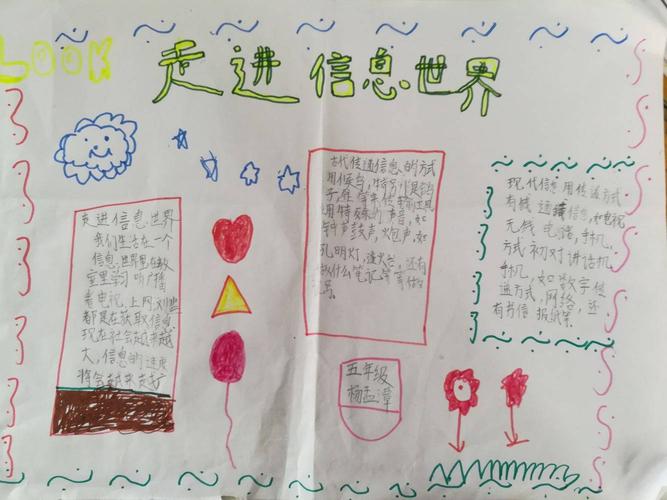 LOOK
走进信息世界
走进信息世界
我们生活在一个
信息世界里在教
室里学习听广播
看电视,上网,浏览
都是在获取信息
现在社会越来越
大,信息的速度
将会越来越
古代传递信息的方式
用候鸟,特
用特殊的声音,如
钟声鼓声,火包声,如
孔明灯,逢火,还有
做什么笔记等等做
号。
现代信息用传递方式
有线通信息,如电视
无线电路,手机,
方式初对讲话机
手机,如数字传
递方式,网络,还
有书信报纸等。
五年级
杨孟漳